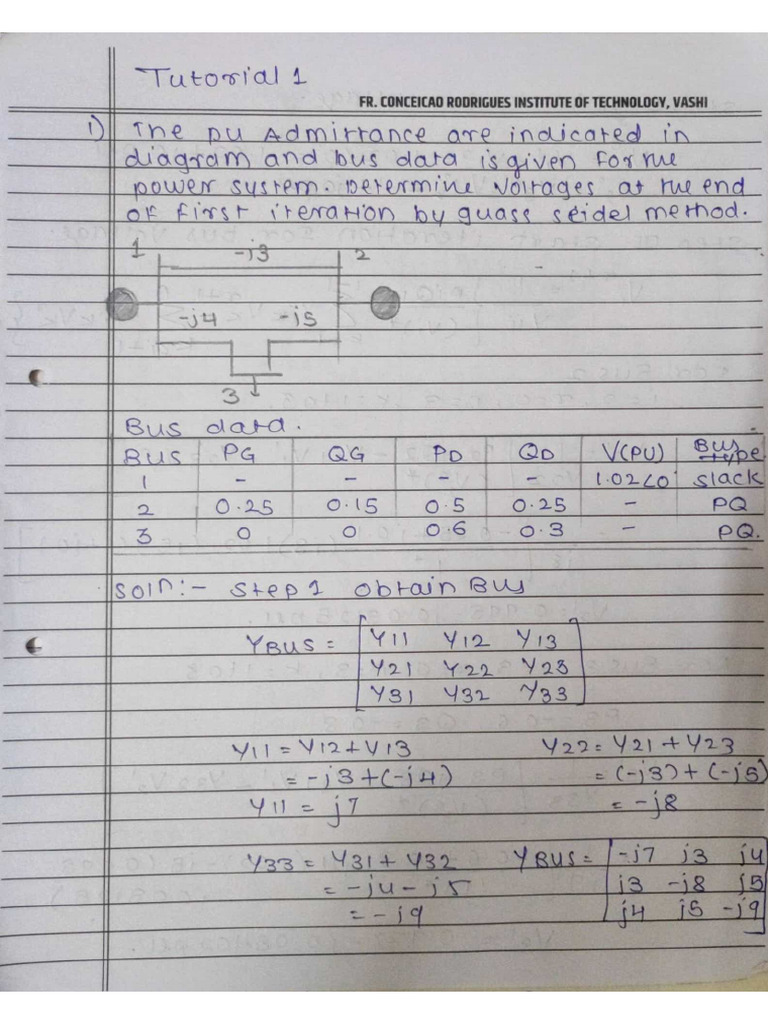 Tutorial 1
FR. CONCEICAO RODRIGUES INSTITUTE OF TECHNOLOGY, VASHI
1) The pu Admittance are indicated in
diagram and bus data is given for the
power system. Determine Voltages at the end
of first iteration by guass seidel method.
1 -j3 2
-j4 -j5
3
Bus data.
BUS PG QG PD QD V(PU) Bus type
1 - - - - 1.02∠0 slack
2 0.25 0.15 0.5 0.25 - PQ
3 0 0 0.6 0.3 - PQ.
Soln:- Step 1 Obtain Bus
YBUS = [Y11 Y12 Y13
Y21 Y22 Y23
Y31 Y32 Y33]
Y11 = Y12 + Y13 Y22 = Y21 + Y23
= -j3 + (-j4) = (-j3) + (-j5)
Y11 = j7 = -j8
Y33 = Y31 + Y32 YBUS = [-j7 j3 j4
= -j4 - j5 j3 -j8 j5
= -j9 j4 j5 -j9]